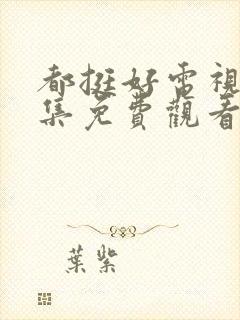 都挺好電視
集免費觀看
葉紫